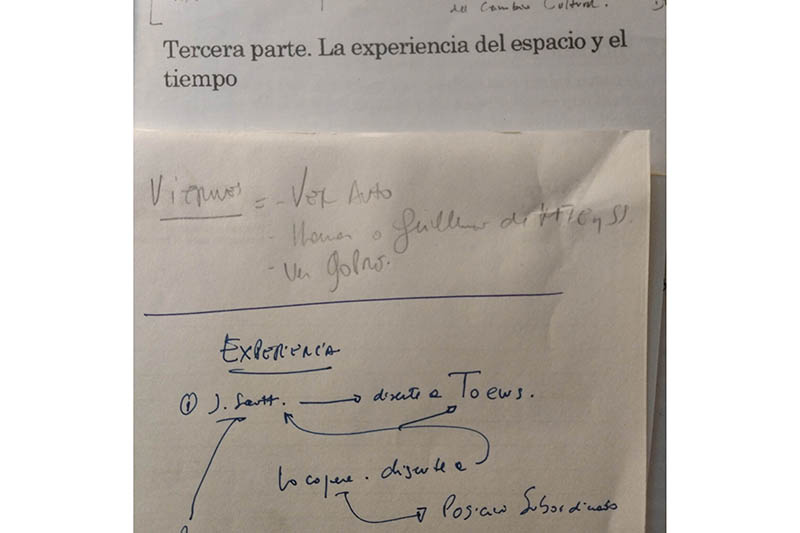 del Cambio Cultural.
Tercera parte. La experiencia del espacio y el
tiempo
Viernes = - Ver Auto
- Llamar a Guillermo de
- Ver GoPro.
EXPERIENCIA
① J. Scott. → discute a Toews.
discute a
Subordinado